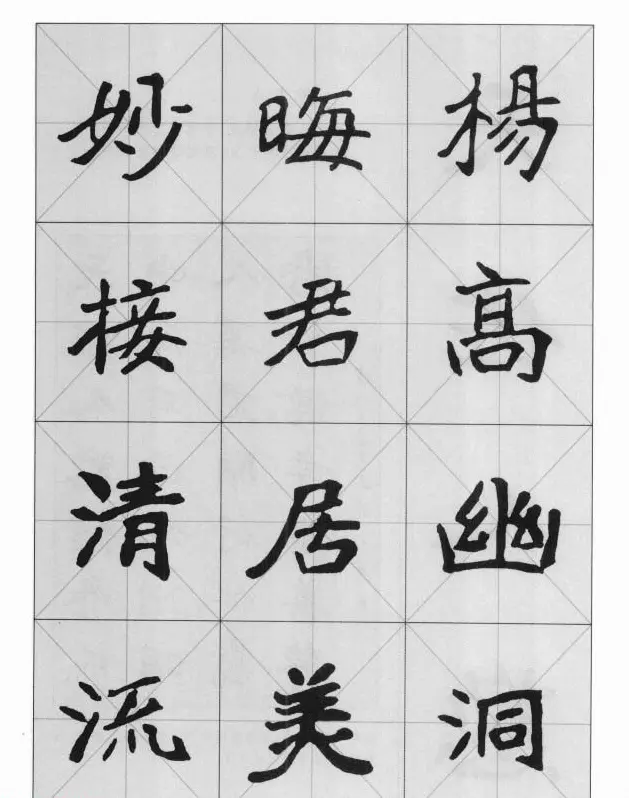 楊髙幽洞
晦君居美
妙接清流